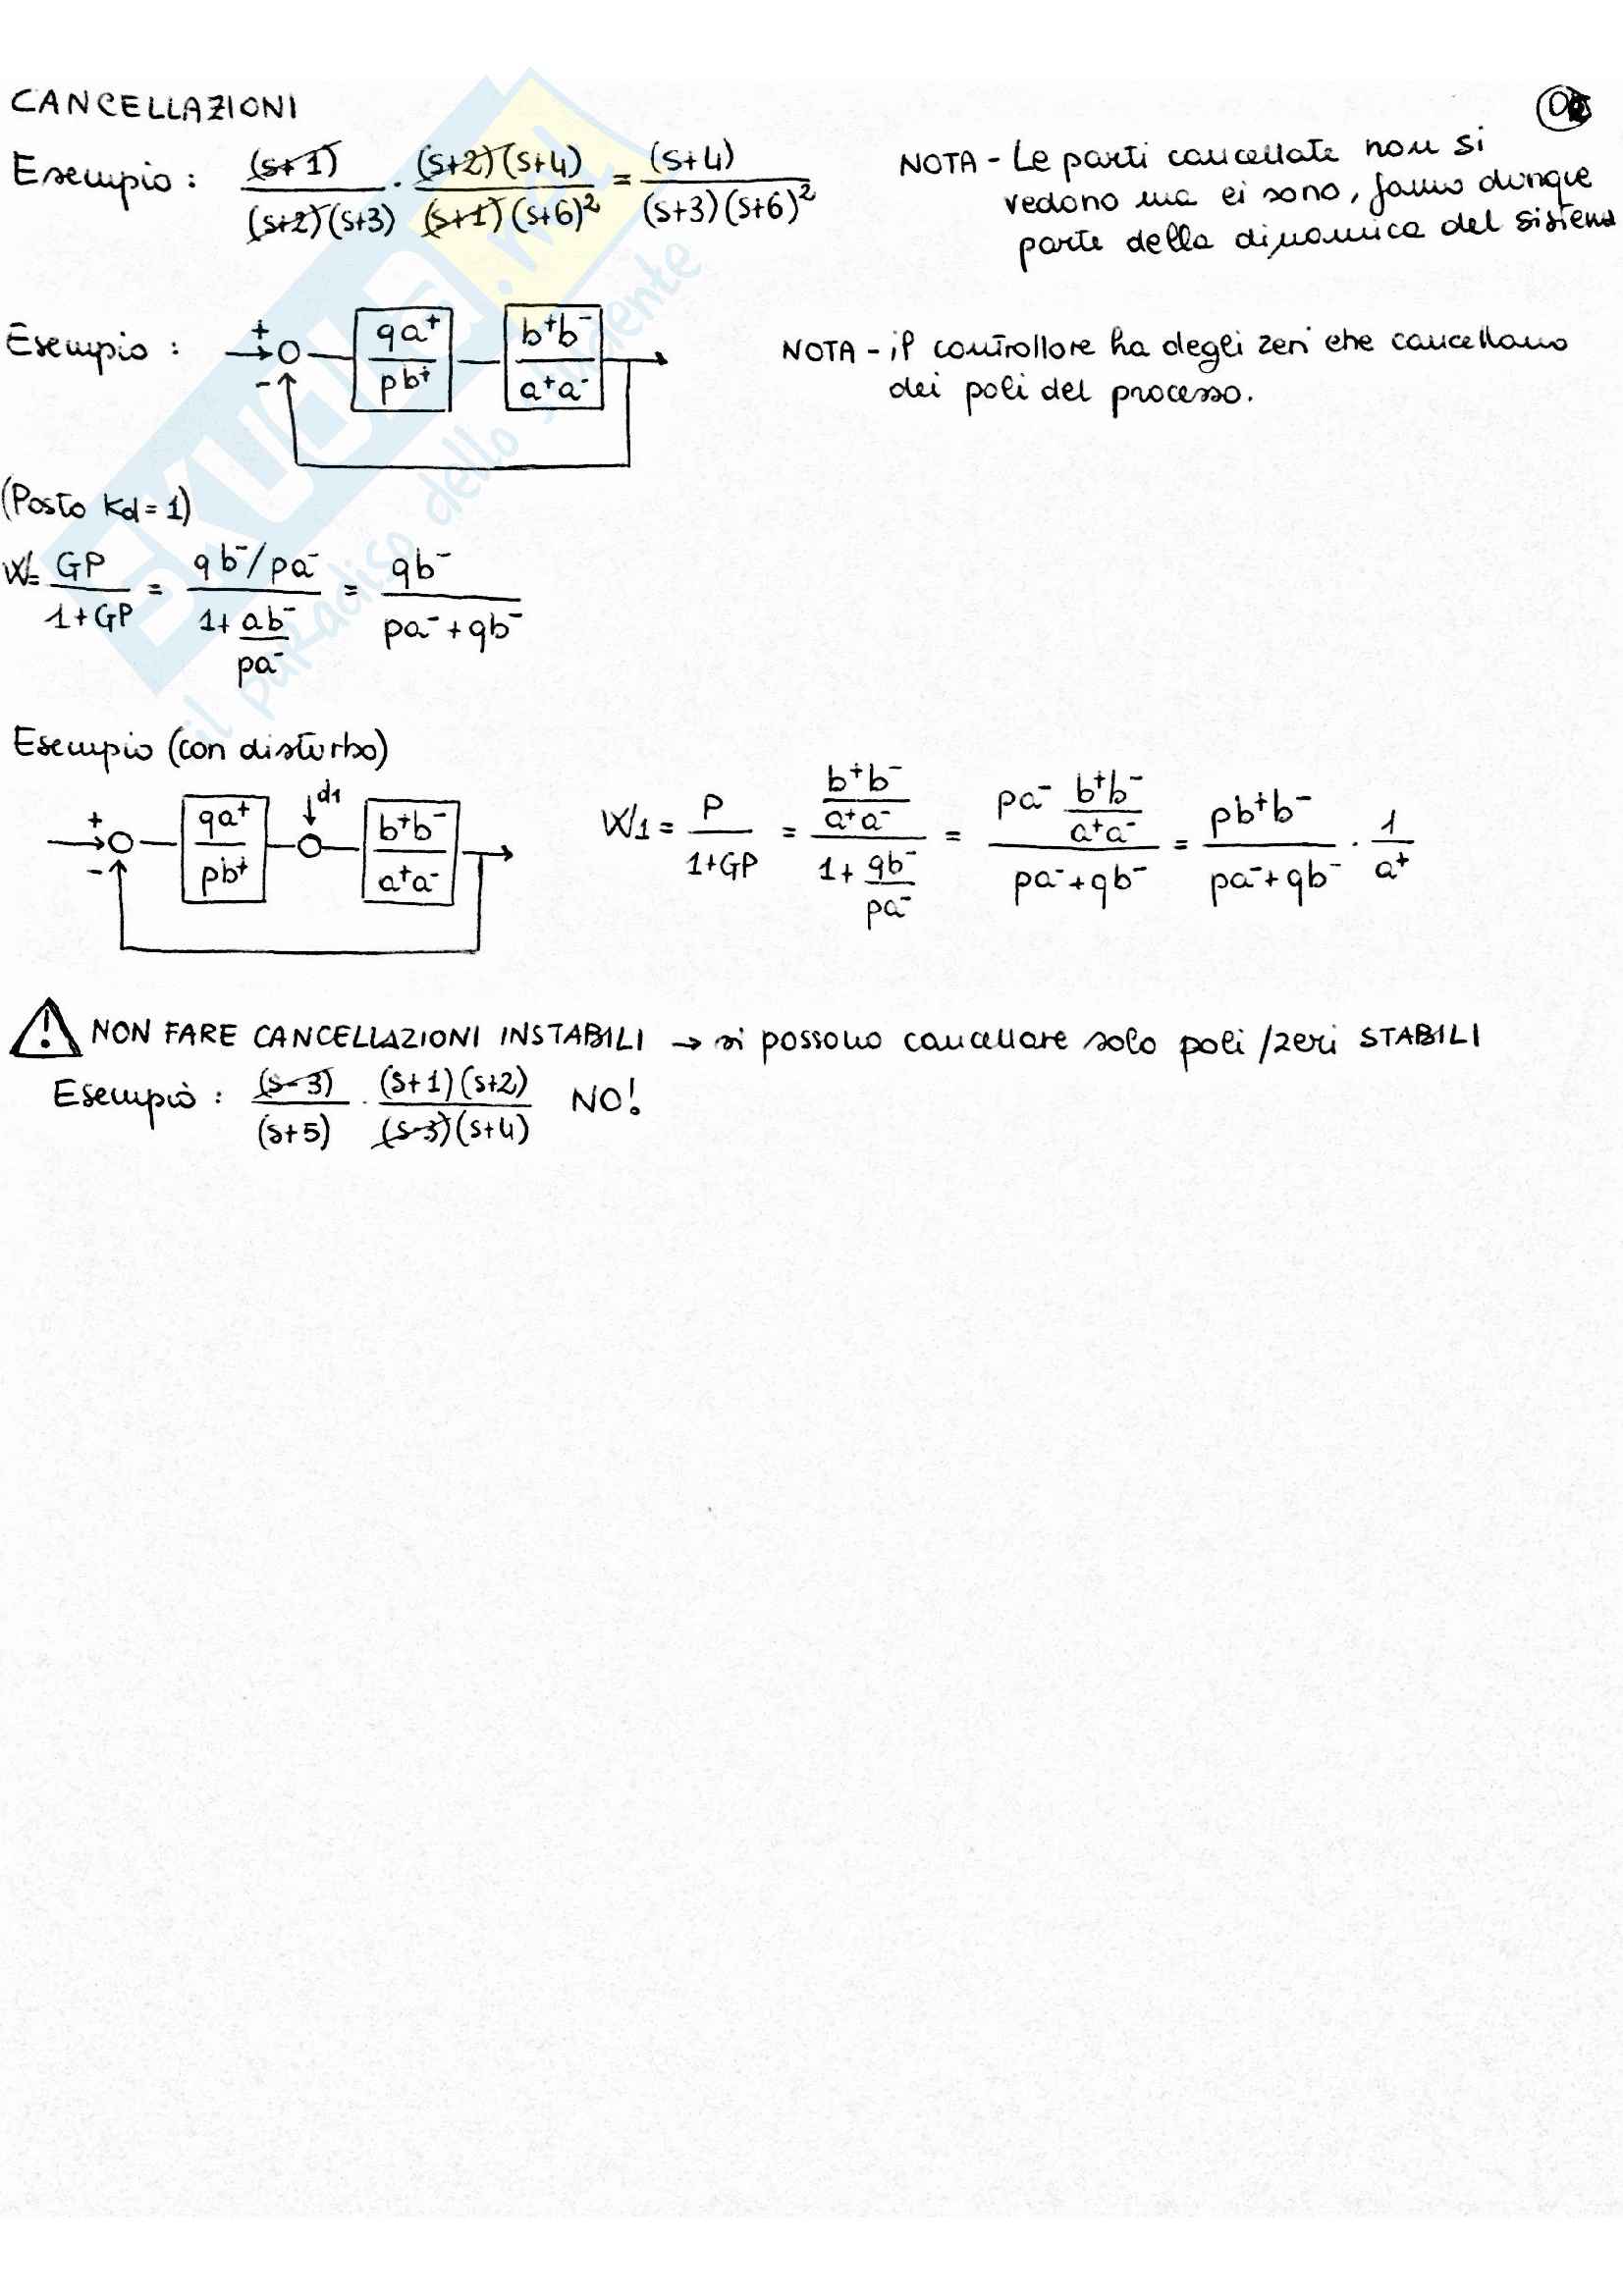 CANCELLAZIONI
Esempio : (s+1)/(s+2)(s+3) · (s+2)(s+4)/(s+1)(s+6)² = (s+4)/(s+3)(s+6)²
NOTA - Le parti cancellate non si
vedono ma ci sono, fanno dunque
parte della dinamica del sistema
Esempio : + - qa⁺/pb⁺ b⁺b⁻/a⁺a⁻
NOTA - il controllore ha degli zeri che cancellano
dei poli del processo.
(Posto Kd = 1)
W = GP/1+GP = qb⁻/pa⁻ / 1+ ab⁻/pa⁻ = qb⁻/pa⁻+qb⁻
Esempio (con disturbo)
+ - qa⁺/pb⁺ d1 b⁺b⁻/a⁺a⁻
W1 = P/1+GP = b⁺b⁻/a⁺a⁻ / 1+ qb⁻/pa⁻ = pa⁻ b⁺b⁻/a⁺a⁻ / pa⁻+qb⁻ = pb⁺b⁻/pa⁻+qb⁻ · 1/a⁺
! NON FARE CANCELLAZIONI INSTABILI → si possono cancellare solo poli/zeri STABILI
Esempio : (s-3)/(s+5) · (s+1)(s+2)/(s-3)(s+4) NO!
SKUOLA.net
il paradiso dello studente